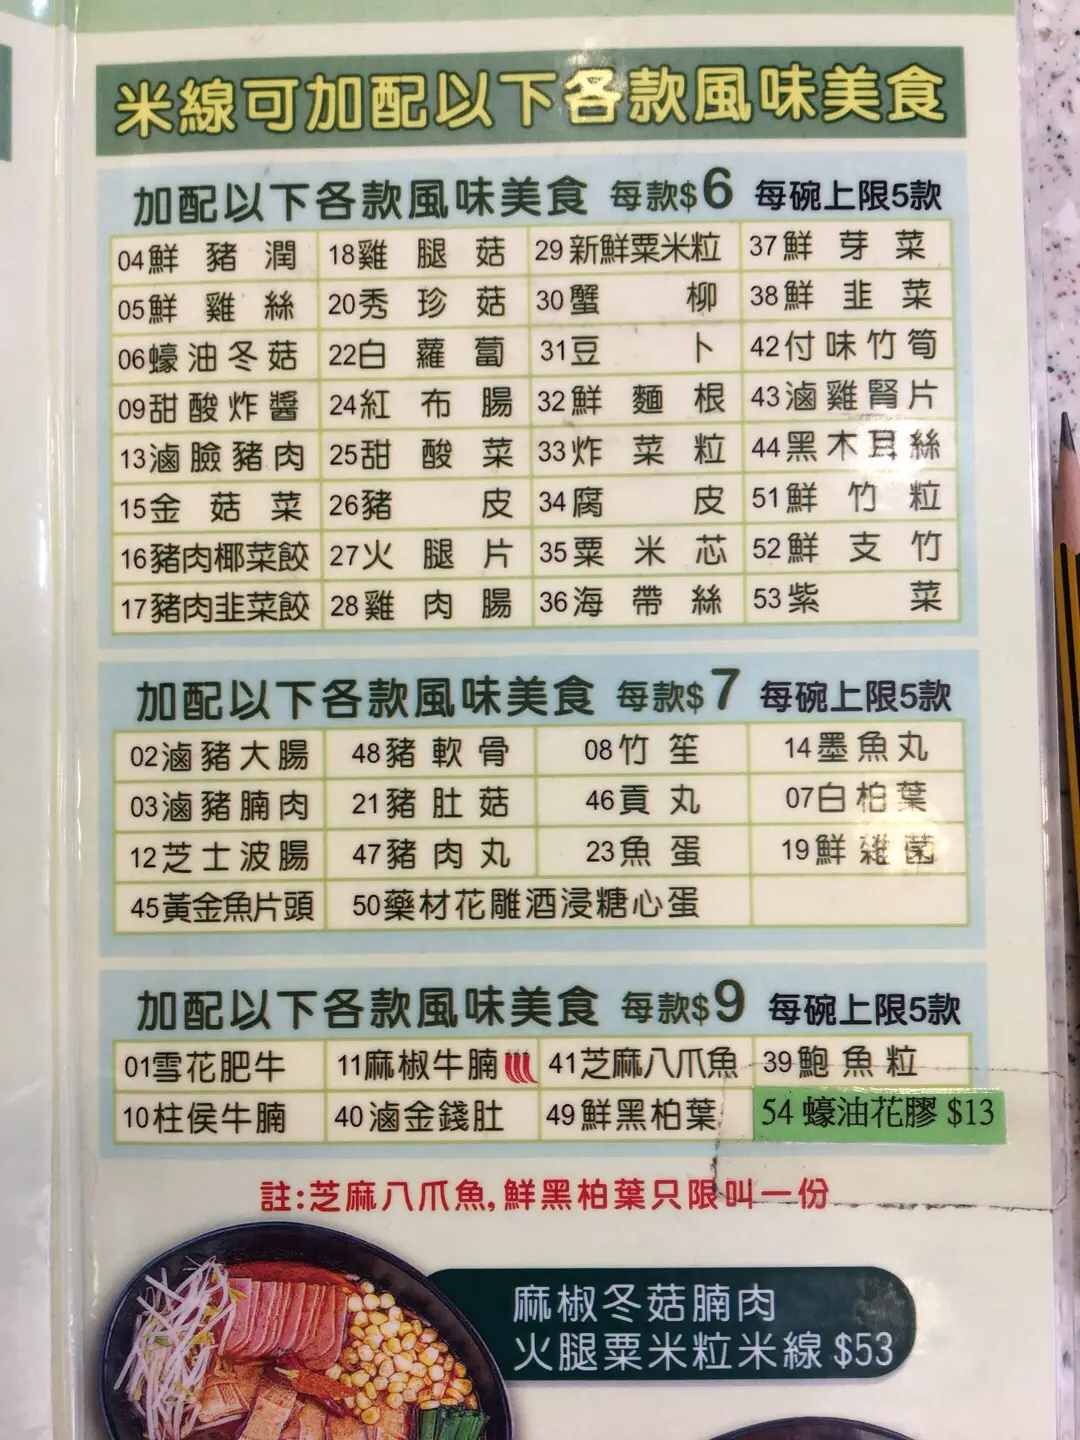 米線可加配以下各款風味美食
加配以下各款風味美食 每款$6 每碗上限5款
04鮮豬潤 18雞腿菇 29新鮮粟米粒 37鮮芽菜
05鮮雞絲 20秀珍菇 30蟹柳 38鮮韭菜
06蠔油冬菇 22白蘿蔔 31豆卜 42付味竹筍
09甜酸炸醬 24紅布腸 32鮮麵根 43滷雞腎片
13滷臉豬肉 25甜酸菜 33炸菜粒 44黑木耳絲
15金菇菜 26豬皮 34腐皮 51鮮竹粒
16豬肉椰菜餃 27火腿片 35粟米芯 52鮮支竹
17豬肉韭菜餃 28雞肉腸 36海帶絲 53紫菜
加配以下各款風味美食 每款$7 每碗上限5款
02滷豬大腸 48豬軟骨 08竹笙 14墨魚丸
03滷豬腩肉 21豬肚菇 46貢丸 07白柏葉
12芝士波腸 47豬肉丸 23魚蛋 19鮮雜菌
45黃金魚片頭 50藥材花雕酒浸糖心蛋
加配以下各款風味美食 每款$9 每碗上限5款
01雪花肥牛 11麻椒牛腩 41芝麻八爪魚 39鮑魚粒
10柱侯牛腩 40滷金錢肚 49鮮黑柏葉 54 蠔油花膠 $13
註:芝麻八爪魚,鮮黑柏葉只限叫一份
麻椒冬菇腩肉
火腿粟米粒米線 $53